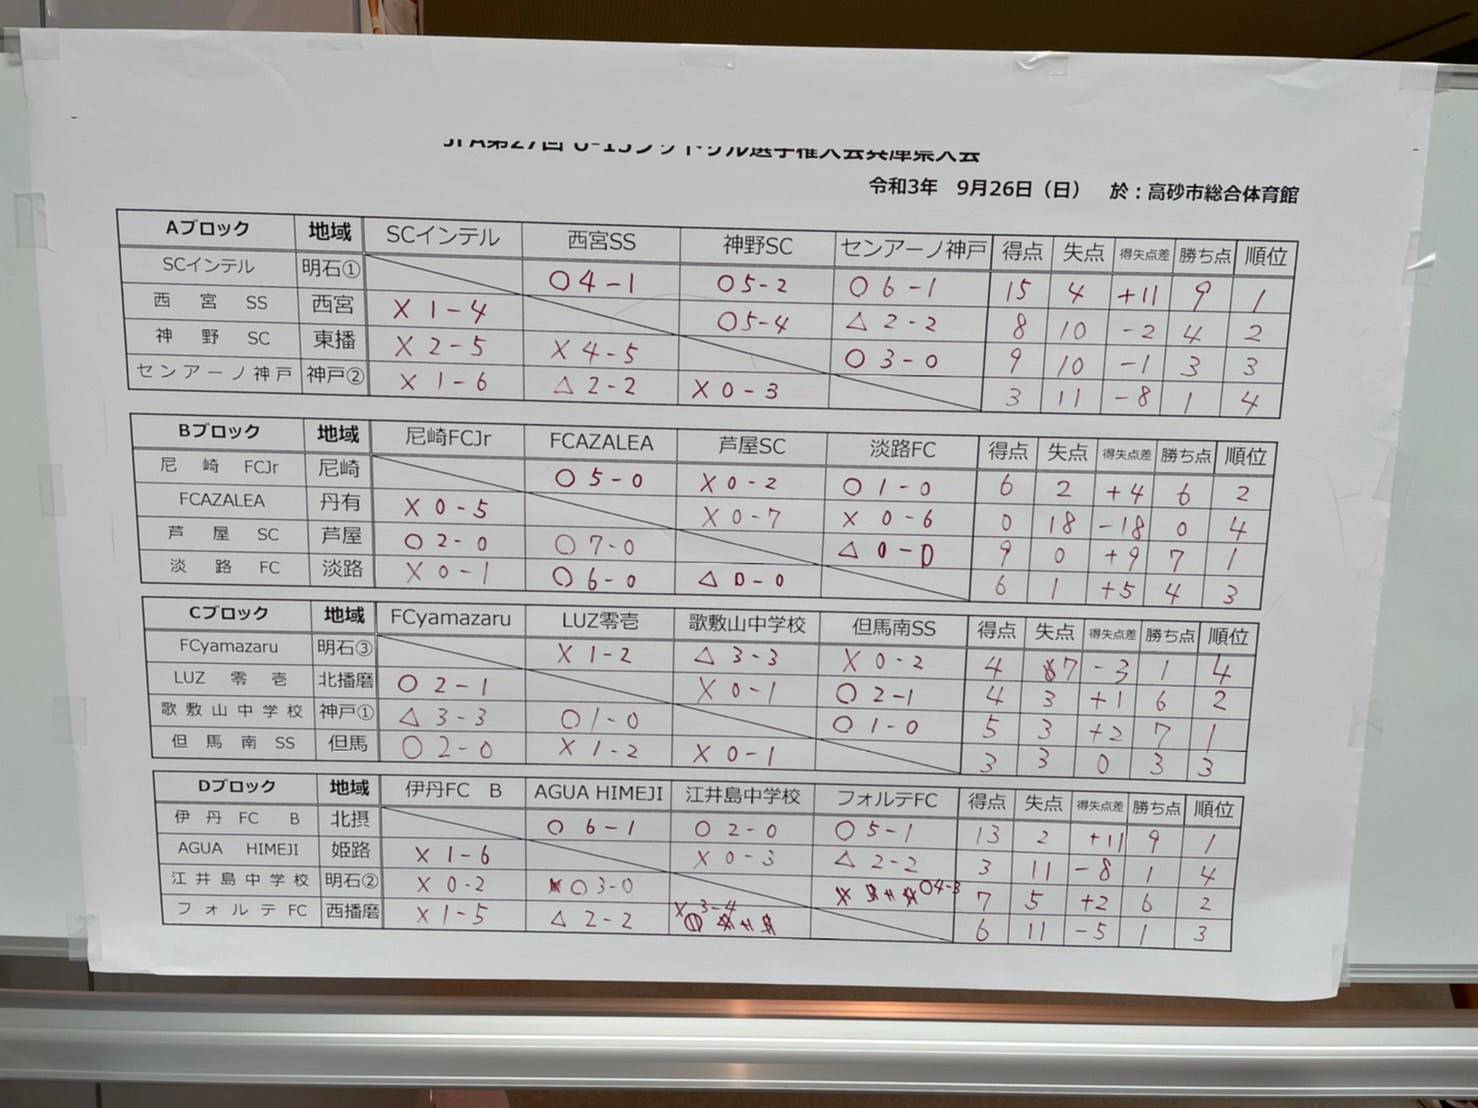 JFA第27回 U-15フットサル選手権大会兵庫県大会
令和3年 9月26日（日） 於：高砂市総合体育館
Aブロック 地域 SCインテル 西宮SS 神野SC センアーノ神戸 得点 失点 得失点差 勝ち点 順位
SCインテル 明石① ○4-1 ○5-2 ○6-1 15 4 +11 9 1
西宮SS 西宮 ×1-4 ○5-4 △2-2 8 10 -2 4 2
神野SC 東播 ×2-5 ×4-5 ○3-0 9 10 -1 3 3
センアーノ神戸 神戸② ×1-6 △2-2 ×0-3 3 11 -8 1 4
Bブロック 地域 尼崎FCJr FCAZALEA 芦屋SC 淡路FC 得点 失点 得失点差 勝ち点 順位
尼崎FCJr 尼崎 ○5-0 ×0-2 ○1-0 6 2 +4 6 2
FCAZALEA 丹有 ×0-5 ×0-7 ×0-6 0 18 -18 0 4
芦屋SC 芦屋 ○2-0 ○7-0 △0-0 9 0 +9 7 1
淡路FC 淡路 ×0-1 ○6-0 △0-0 6 1 +5 4 3
Cブロック 地域 FCyamazaru LUZ零壱 歌敷山中学校 但馬南SS 得点 失点 得失点差 勝ち点 順位
FCyamazaru 明石③ ×1-2 △3-3 ×0-2 4 7 -3 1 4
LUZ零壱 北播磨 ○2-1 ×0-1 ○2-1 4 3 +1 6 2
歌敷山中学校 神戸① △3-3 ○1-0 ○1-0 5 3 +2 7 1
但馬南SS 但馬 ○2-0 ×1-2 ×0-1 3 3 0 3 3
Dブロック 地域 伊丹FC B AGUA HIMEJI 江井島中学校 フォルテFC 得点 失点 得失点差 勝ち点 順位
伊丹FC B 北摂 ○6-1 ○2-0 ○5-1 13 2 +11 9 1
AGUA HIMEJI 姫路 ×1-6 ×0-3 △2-2 3 11 -8 1 4
江井島中学校 明石② ×0-2 ○3-0 ○4-3 7 5 +2 6 2
フォルテFC 西播磨 ×1-5 △2-2 ×3-4 6 11 -5 1 3